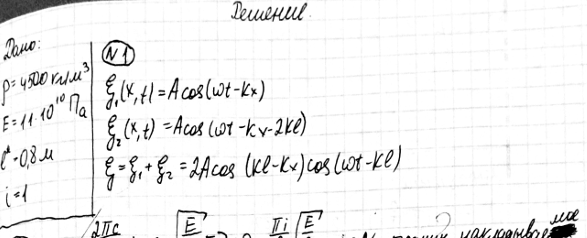 Решение.
Дано:
ρ = 4500 кг/м³
E = 11·10¹⁰ Па
l = 0,8 м
i = 1
N1
ξ₁(x,t) = A cos(ωt - kx)
ξ₂(x,t) = A cos(ωt - kx - 2kl)
ξ = ξ₁ + ξ₂ = 2A cos(kl - kx) cos(ωt - kl)
2πc E πi E накладывае